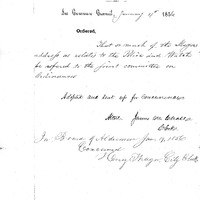 In Common Council, January 9th 1856
Ordered,
That so much of the Mayors
address as relates to the Police and Watch
be referred to the joint committee on
Ordinances
Adopted and sent up for concurrence
Attest James
Clerk
In Board of Aldermen Jan 9, 1856
Concurred
City Clerk